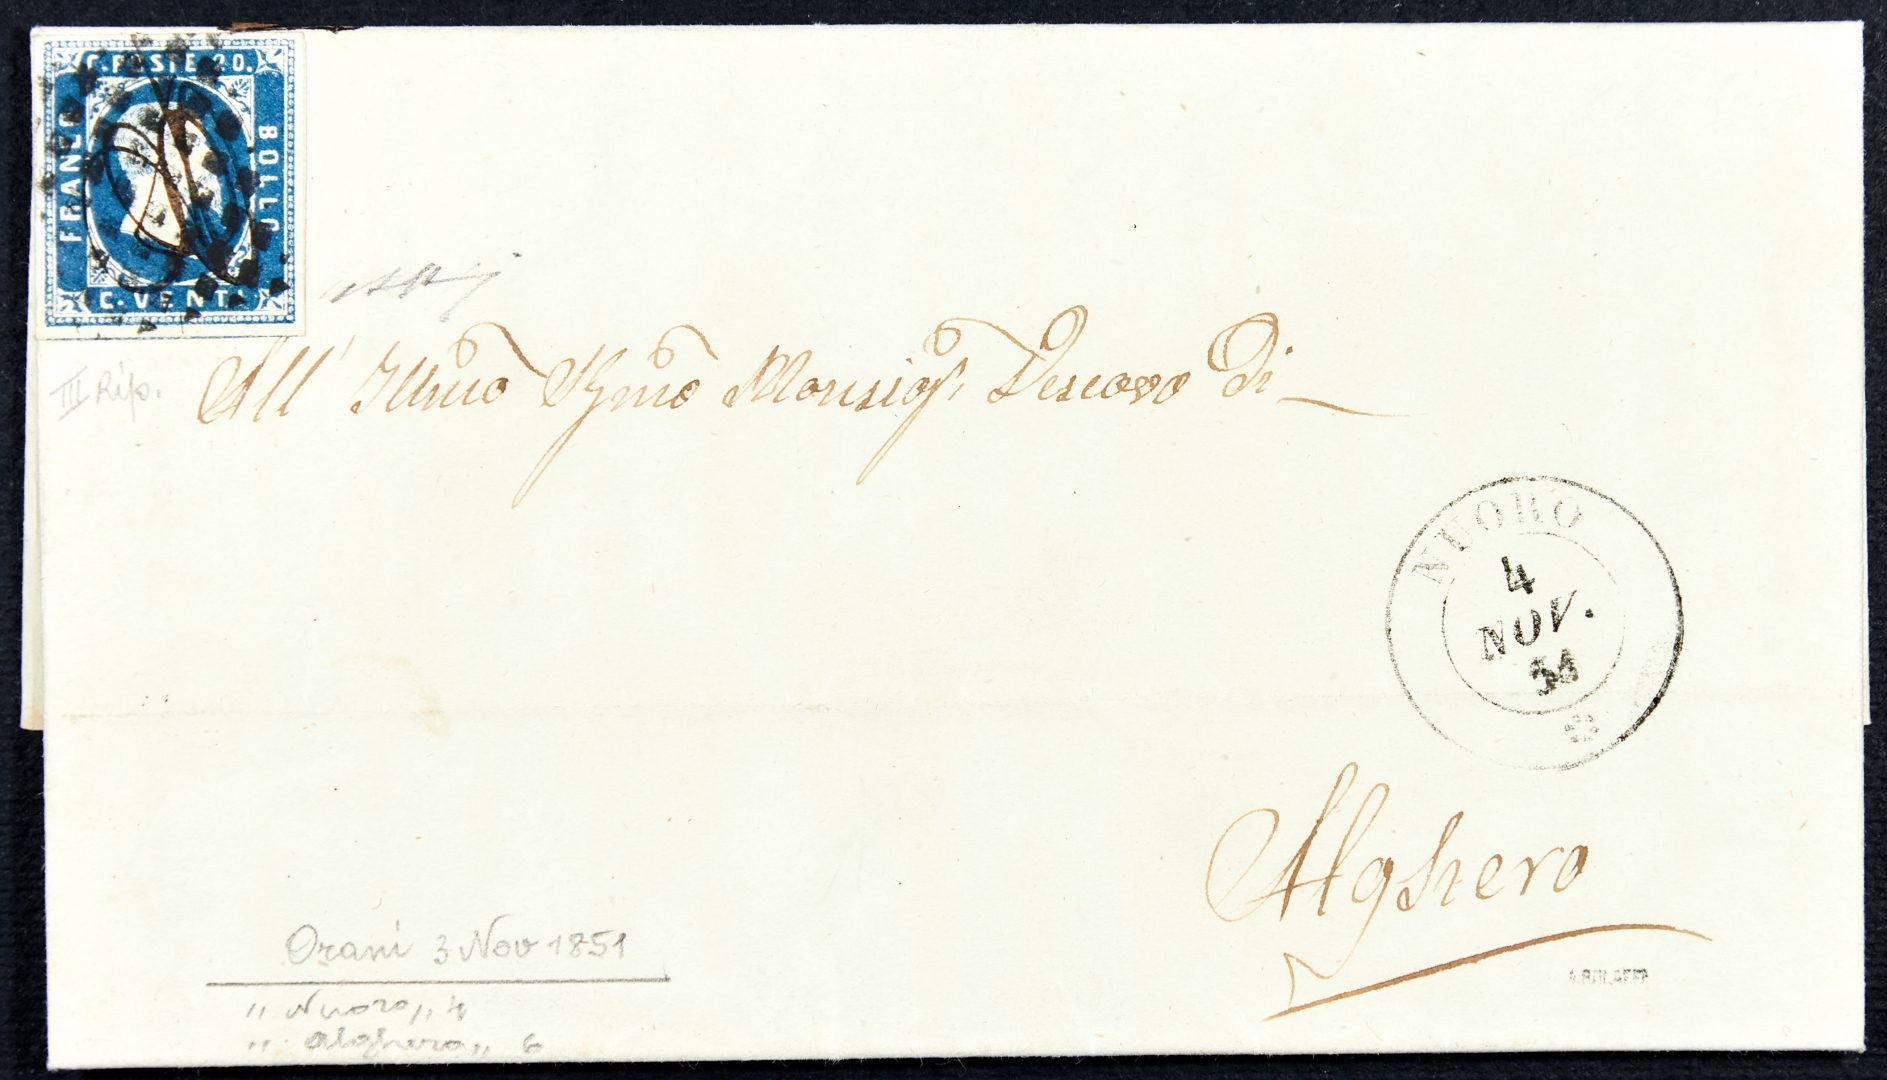 C. POSTE 20.
FRANCO
BOLLO
C. VENTI
III Rip.
All' Illmo Rmo Monsigr Vescovo di
NUORO
4
NOV.
51
Alghero
Orani 3 Nov 1851
" Nuoro " 4
" Alghero " 6
A. BOLAFFI